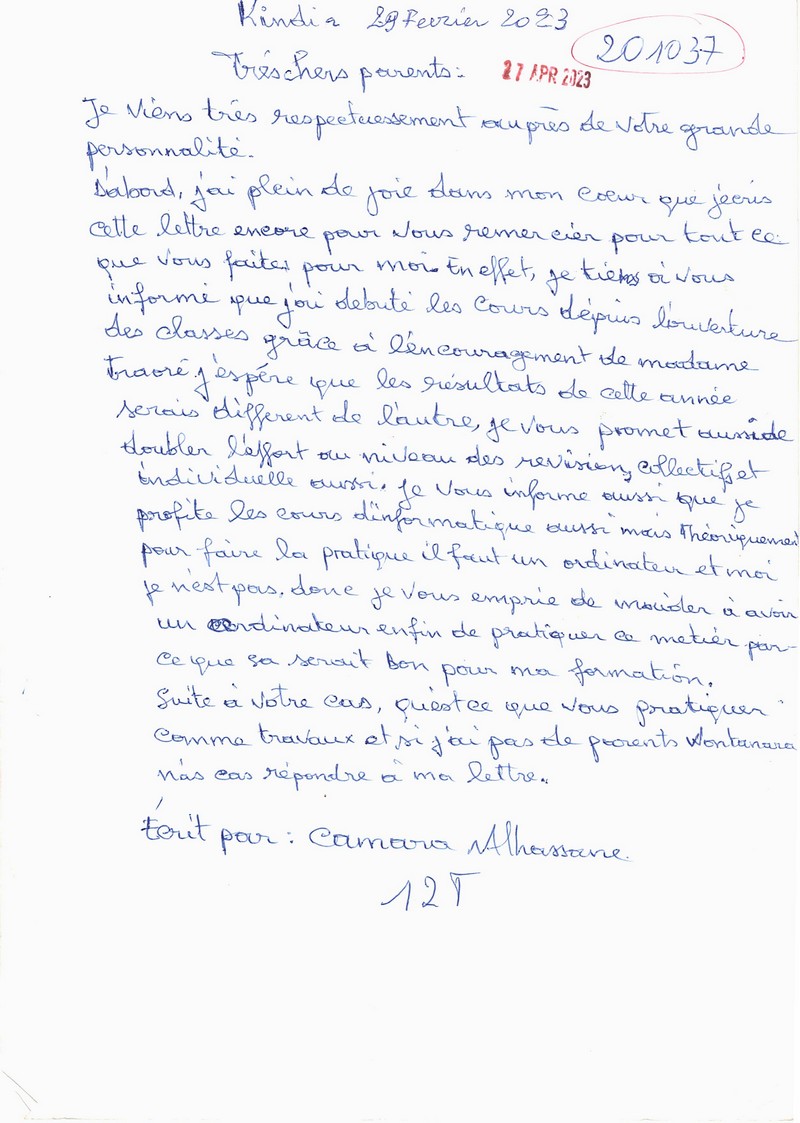 Kindia 29 Fevrier 2023
201037
Trèschers parents:
27 APR 2023
Je viens très respectuessement auprès de votre grande
personnalité.
D'abord, j'ai plein de joie dans mon coeur que j'écris
cette lettre encore pour vous remercier pour tout ce
que vous faites pour moi. En effet, je tiens à vous
informé que j'ai debuté les cours dépuis l'ouverture
des classes grâce à l'éncouragement de madame
Traoré. j'espère que les résultats de cette année
serais different de l'autre, je vous promet aussi de
doubler l'effort au niveau des revision, collectif et
individuelle aussi. Je vous informe aussi que je
profite les cours d'informatique aussi mais Théoriquement
pour faire la pratique il faut un ordinateur et moi
je n'est pas. donc je vous emprie de m'aider à avoir
un ordinateur enfin de pratiquer ce metier par-
ce que sa serait bon pour ma formation.
Suite à votre cas, qu'est ce que vous pratiquer
comme travaux et si j'ai pas de parents Wontanara
n'as cas répondre à ma lettre.
Écrit par : Camara Alhassane.
12T